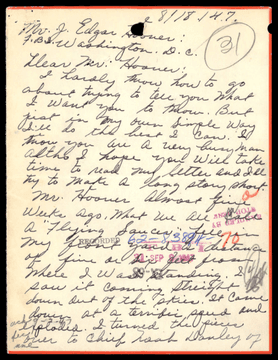 8/18/47.
31
Mr. J. Edgar Hoover:
F.B.I. Washington. D.C.
Dear Mr. Hoover:
I hardly know how to go
about trying to tell you what
I want you to know. But
just in my own simple way
I'll do the best I can. I
know you are a very busy man
altho I hope you will take
time to read my letter and I'll
try to make a long story short.
Mr. Hoover almost five
weeks ago. What we are
A "Flying Saucer" fell in
my
RECORDED
of five or six ft. from
where I was standing. I
saw it coming streight
down out of the skies. It came
down at a terrific speed and
I turned the pieces
over to Chief